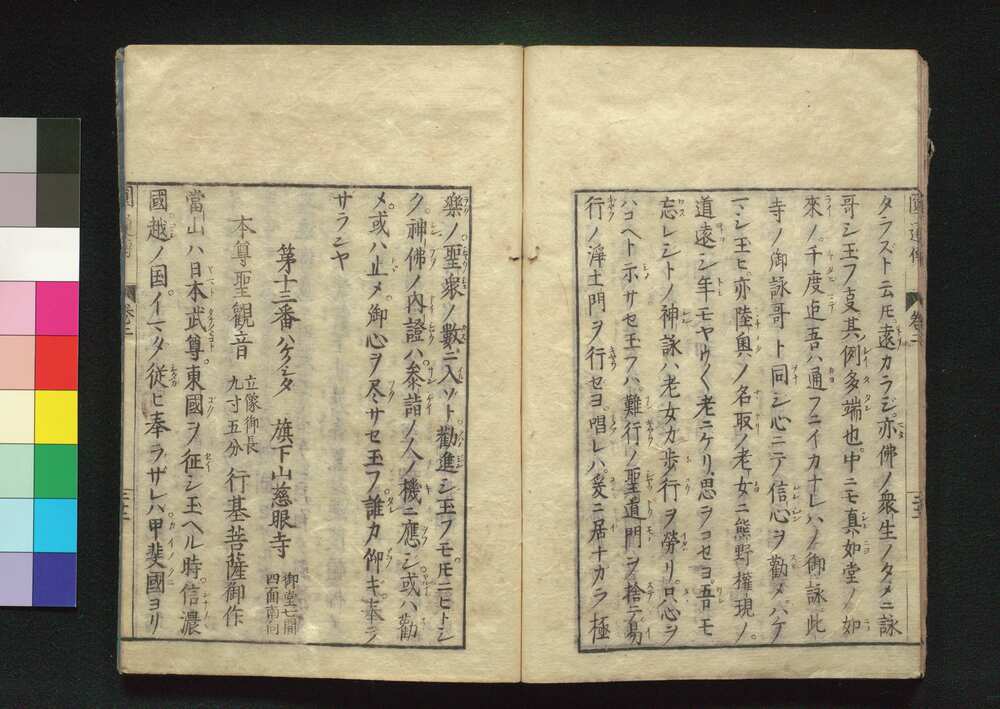 タラズト云𪜈遠カラジ。亦佛ノ衆生ノタメニ詠
哥シ玉フ支其例多端也。中ニモ真如堂ノ如
來ノ。千度迠吾ハ通フニイカナレハノ御詠此
寺ノ御詠哥ト同シ心ニテ信心ヲ勸メハケ
マシ玉ヒ。亦陸奥ノ名取ノ老女ニ熊野權現ノ。
道遠シ年モヤウ〱老ニケリ思ヲコセヨ吾モ
忘レシトノ神詠ハ老女カ歩行ヲ勞リ。只心ヲ
ハコヘト示サセ玉フハ。難行ノ聖道門ヲ捨テ易
行ノ淨土門ヲ行セヨ。唱レハ爰ニ居ナカラ極
樂ノ聖衆ノ數ニ入ソト勸進シ玉フモ𪜈ニヒトシ
ク。神佛ノ内證ハ叅詣ノ人ノ機ニ應シ或ハ勸
メ或ハ止メ御心ヲ尽サセ玉フ。誰カ仰キ奉ラ
サランヤ
第十三番ハケシタ 旗下山慈眼寺 御堂七間四面南向
本尊聖觀音 立像御長九寸五分 行基菩薩御作
當山ハ日本武尊。東國ヲ征シ玉ヘル時信濃
國越ノ国イマタ従ヒ奉ラザレハ甲斐國ヨリ